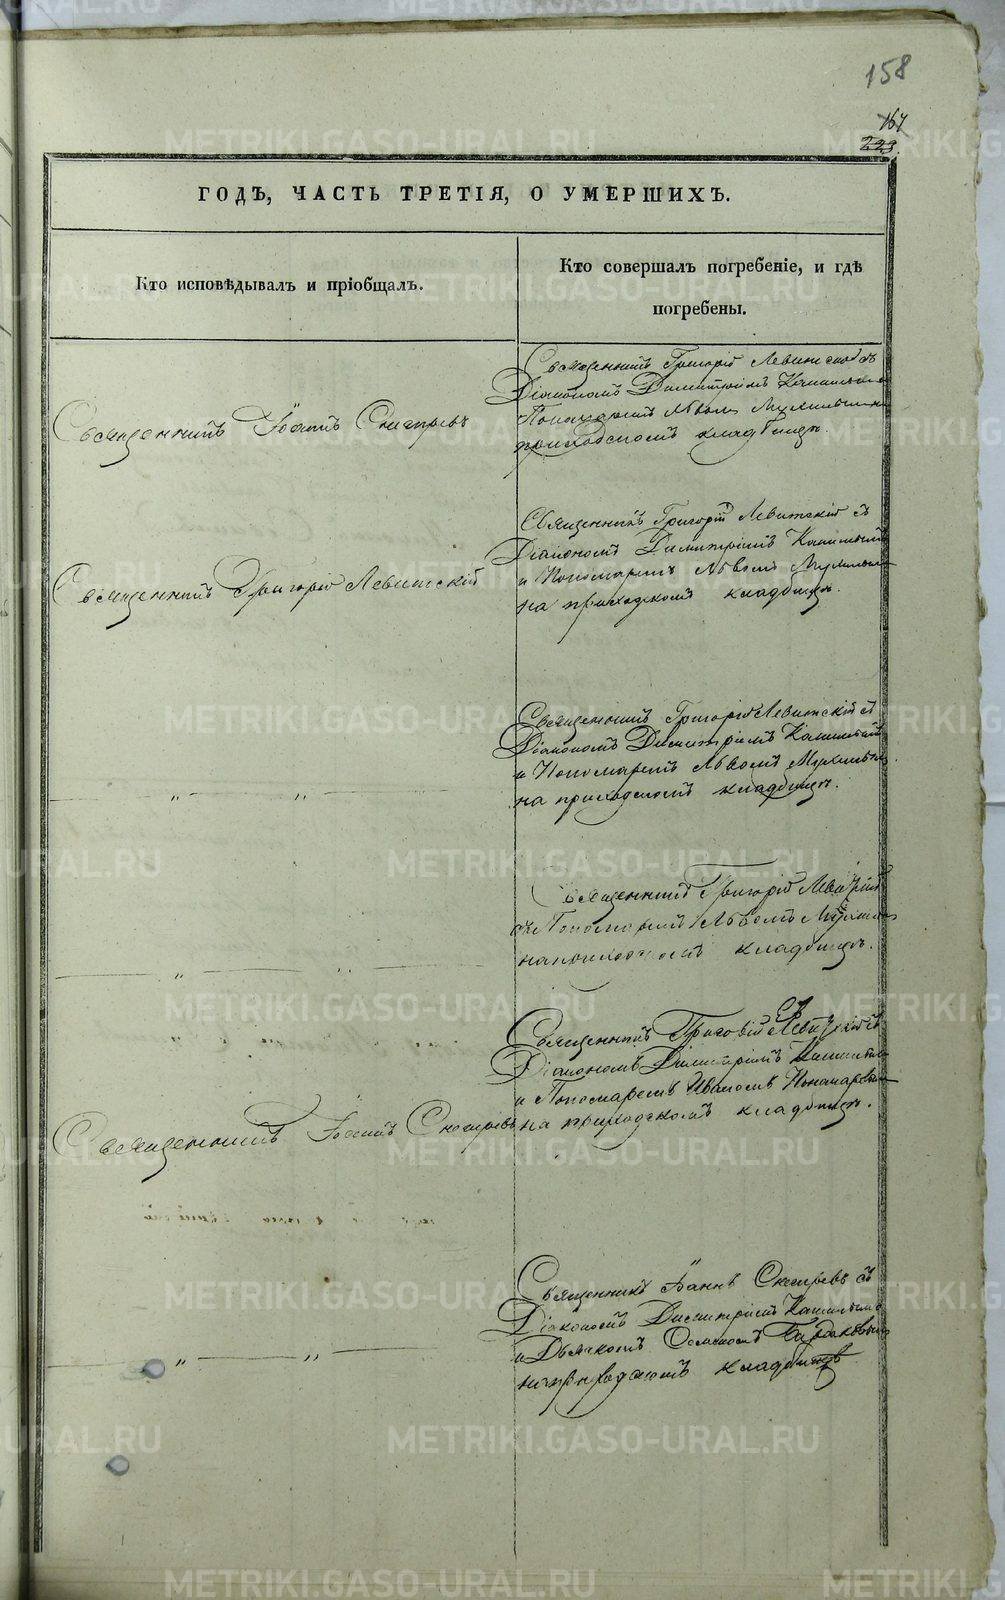 158
167
223.
ГОДЪ, ЧАСТЬ ТРЕТІЯ, О УМЕРШИХЪ.
Кто исповѣдывалъ и пріобщалъ.
Кто совершалъ погребеніе, и гдѣ
погребены.
Священникъ Григорій Левитской съ
Діакономъ Димитріемъ
Пономаремъ Львомъ
приходскомъ кладбищѣ.
Священникъ Іоаннъ Снигирев
Священникъ Григорій Левитскій съ
Діакономъ Димитріемъ
и Пономаремъ Львомъ
на приходскомъ кладбищѣ.
Священникъ Григорій Левитскій
Священникъ Григорій Левитскій съ
Діакономъ Димитріемъ
и Пономаремъ Львомъ
на приходскомъ кладбищѣ.
— " — " —
Священникъ Григорій
съ Пономаремъ Львомъ
на приходскомъ кладбищѣ.
— " — " —
Священникъ Григорій Левитскій съ
Діакономъ Димитріемъ
и Пономаремъ Иваномъ
на приходскомъ кладбищѣ.
Священникъ Іоаннъ Снигиревъ
Священникъ Іоаннъ Снигиревъ съ
Діакономъ Димитріемъ
и Дьячкомъ
на приходскомъ кладбищѣ
— " — " —
METRIKI.GASO-URAL.RU